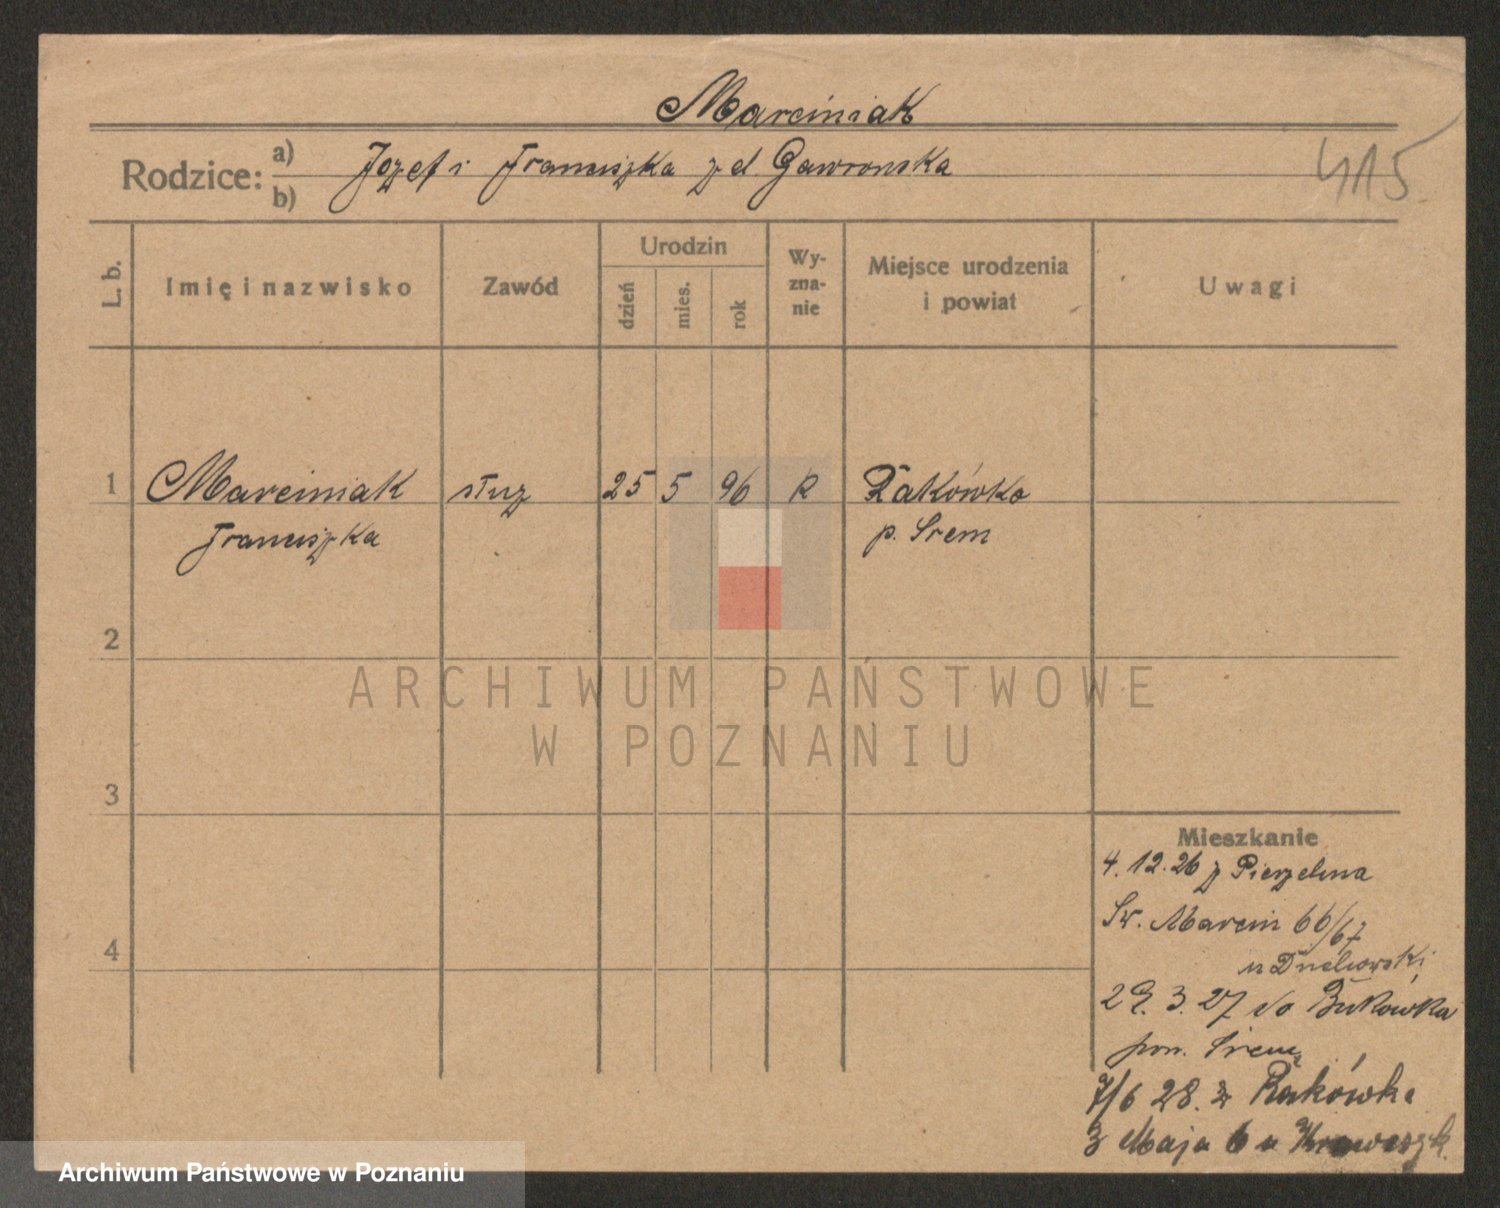 Marciniak
Rodzice: a) Józef i Franciszka z d. Gawronska
b)
415
L. b.
Imię i nazwisko
Zawód
Urodzin
dzień
mies.
rok
Wy-
zna-
nie
Miejsce urodzenia
i powiat
Uwagi
1 Marciniak służ 25 5 96 R Rakówka
Franciszka p. Srem
2
ARCHIWUM PAŃSTWOWE
W POZNANIU
3
Mieszkanie
4. 12. 26 z
Sw. Marcin 66/67
4
29. 3. 27 do
pow. Srem
7/6 28. z Rakówka
3 Maja 6 u
Archiwum Państwowe w Poznaniu